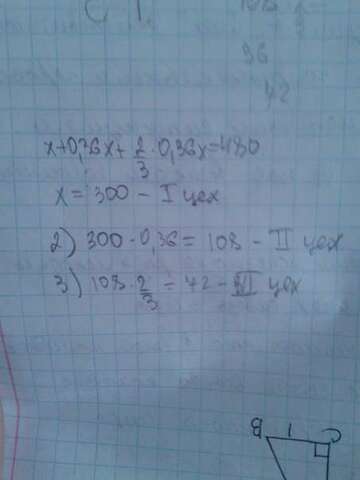 C 1.
96
42
x+0,36x+2/3·0,36x=480
x=300 - I цех
2) 300·0,36=108 - II цех
3) 108·2/3=42 - III цех
B 1 C